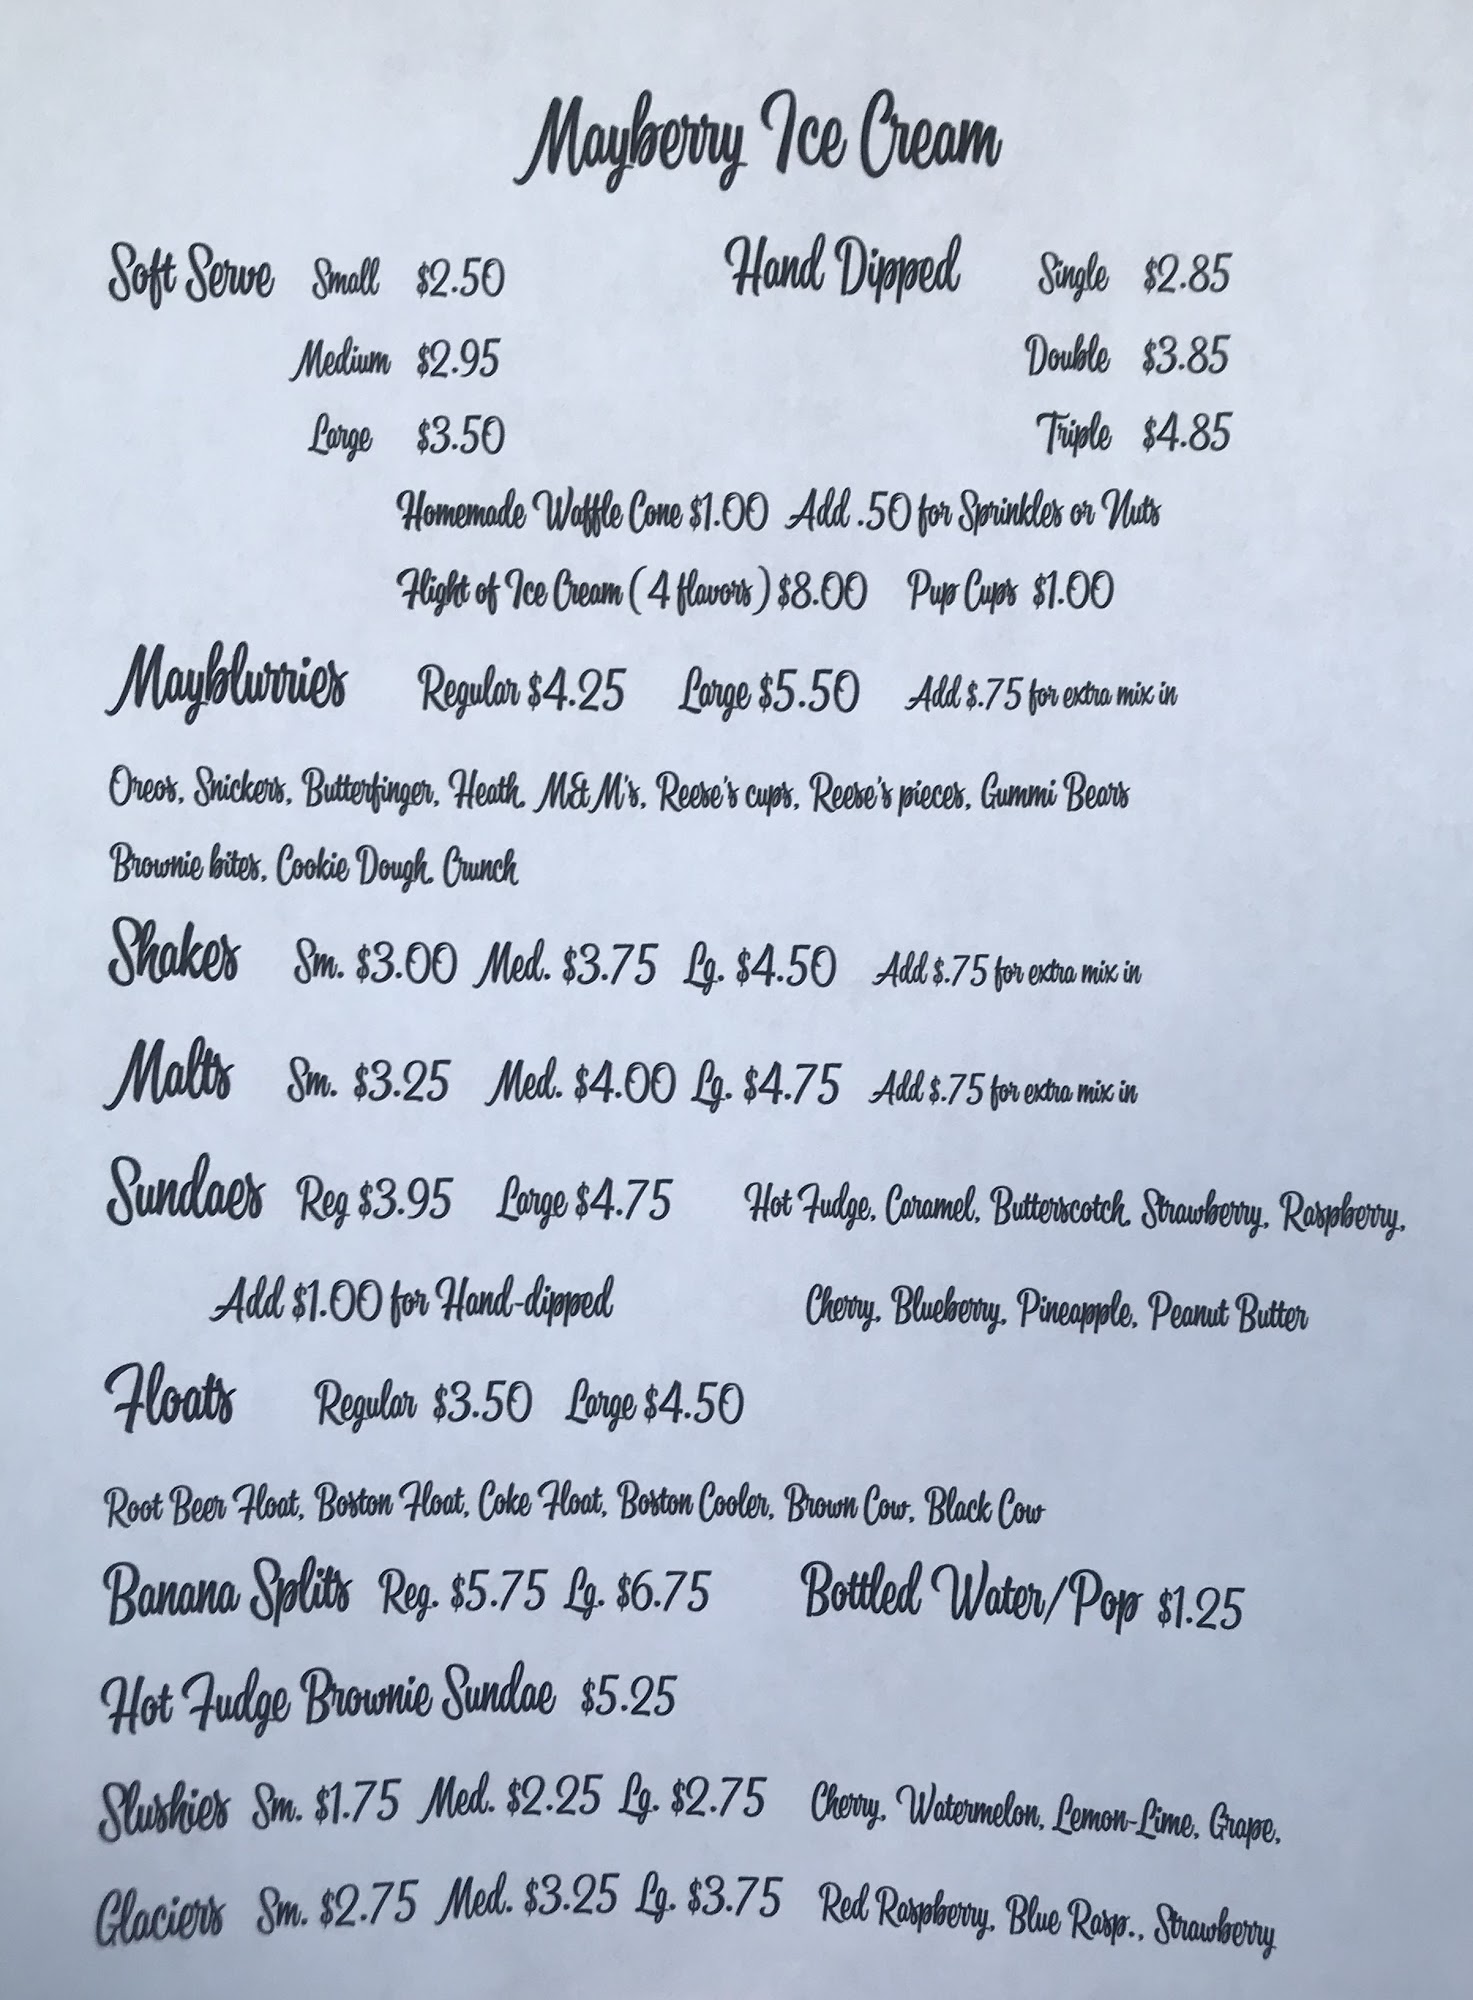 Mayberry Ice Cream
Soft Serve Small $2.50 Hand Dipped Single $2.85
Medium $2.95 Double $3.85
Large $3.50 Triple $4.85
Homemade Waffle Cone $1.00 Add .50 for Sprinkles or Nuts
Flight of Ice Cream ( 4 flavors ) $8.00 Pup Cups $1.00
Mayblurries Regular $4.25 Large $5.50 Add $.75 for extra mix in
Oreos, Snickers, Butterfinger, Heath, M&M's, Reese's cups, Reese's pieces, Gummi Bears
Brownie bites, Cookie Dough, Crunch
Shakes Sm. $3.00 Med. $3.75 Lg. $4.50 Add $.75 for extra mix in
Malts Sm. $3.25 Med. $4.00 Lg. $4.75 Add $.75 for extra mix in
Sundaes Reg $3.95 Large $4.75 Hot Fudge, Caramel, Butterscotch, Strawberry, Raspberry,
Add $1.00 for Hand-dipped Cherry, Blueberry, Pineapple, Peanut Butter
Floats Regular $3.50 Large $4.50
Root Beer Float, Boston Float, Coke Float, Boston Cooler, Brown Cow, Black Cow
Banana Splits Reg. $5.75 Lg. $6.75 Bottled Water/Pop $1.25
Hot Fudge Brownie Sundae $5.25
Slushies Sm. $1.75 Med. $2.25 Lg. $2.75 Cherry, Watermelon, Lemon-Lime, Grape,
Glaciers Sm. $2.75 Med. $3.25 Lg. $3.75 Red Raspberry, Blue Rasp., Strawberry